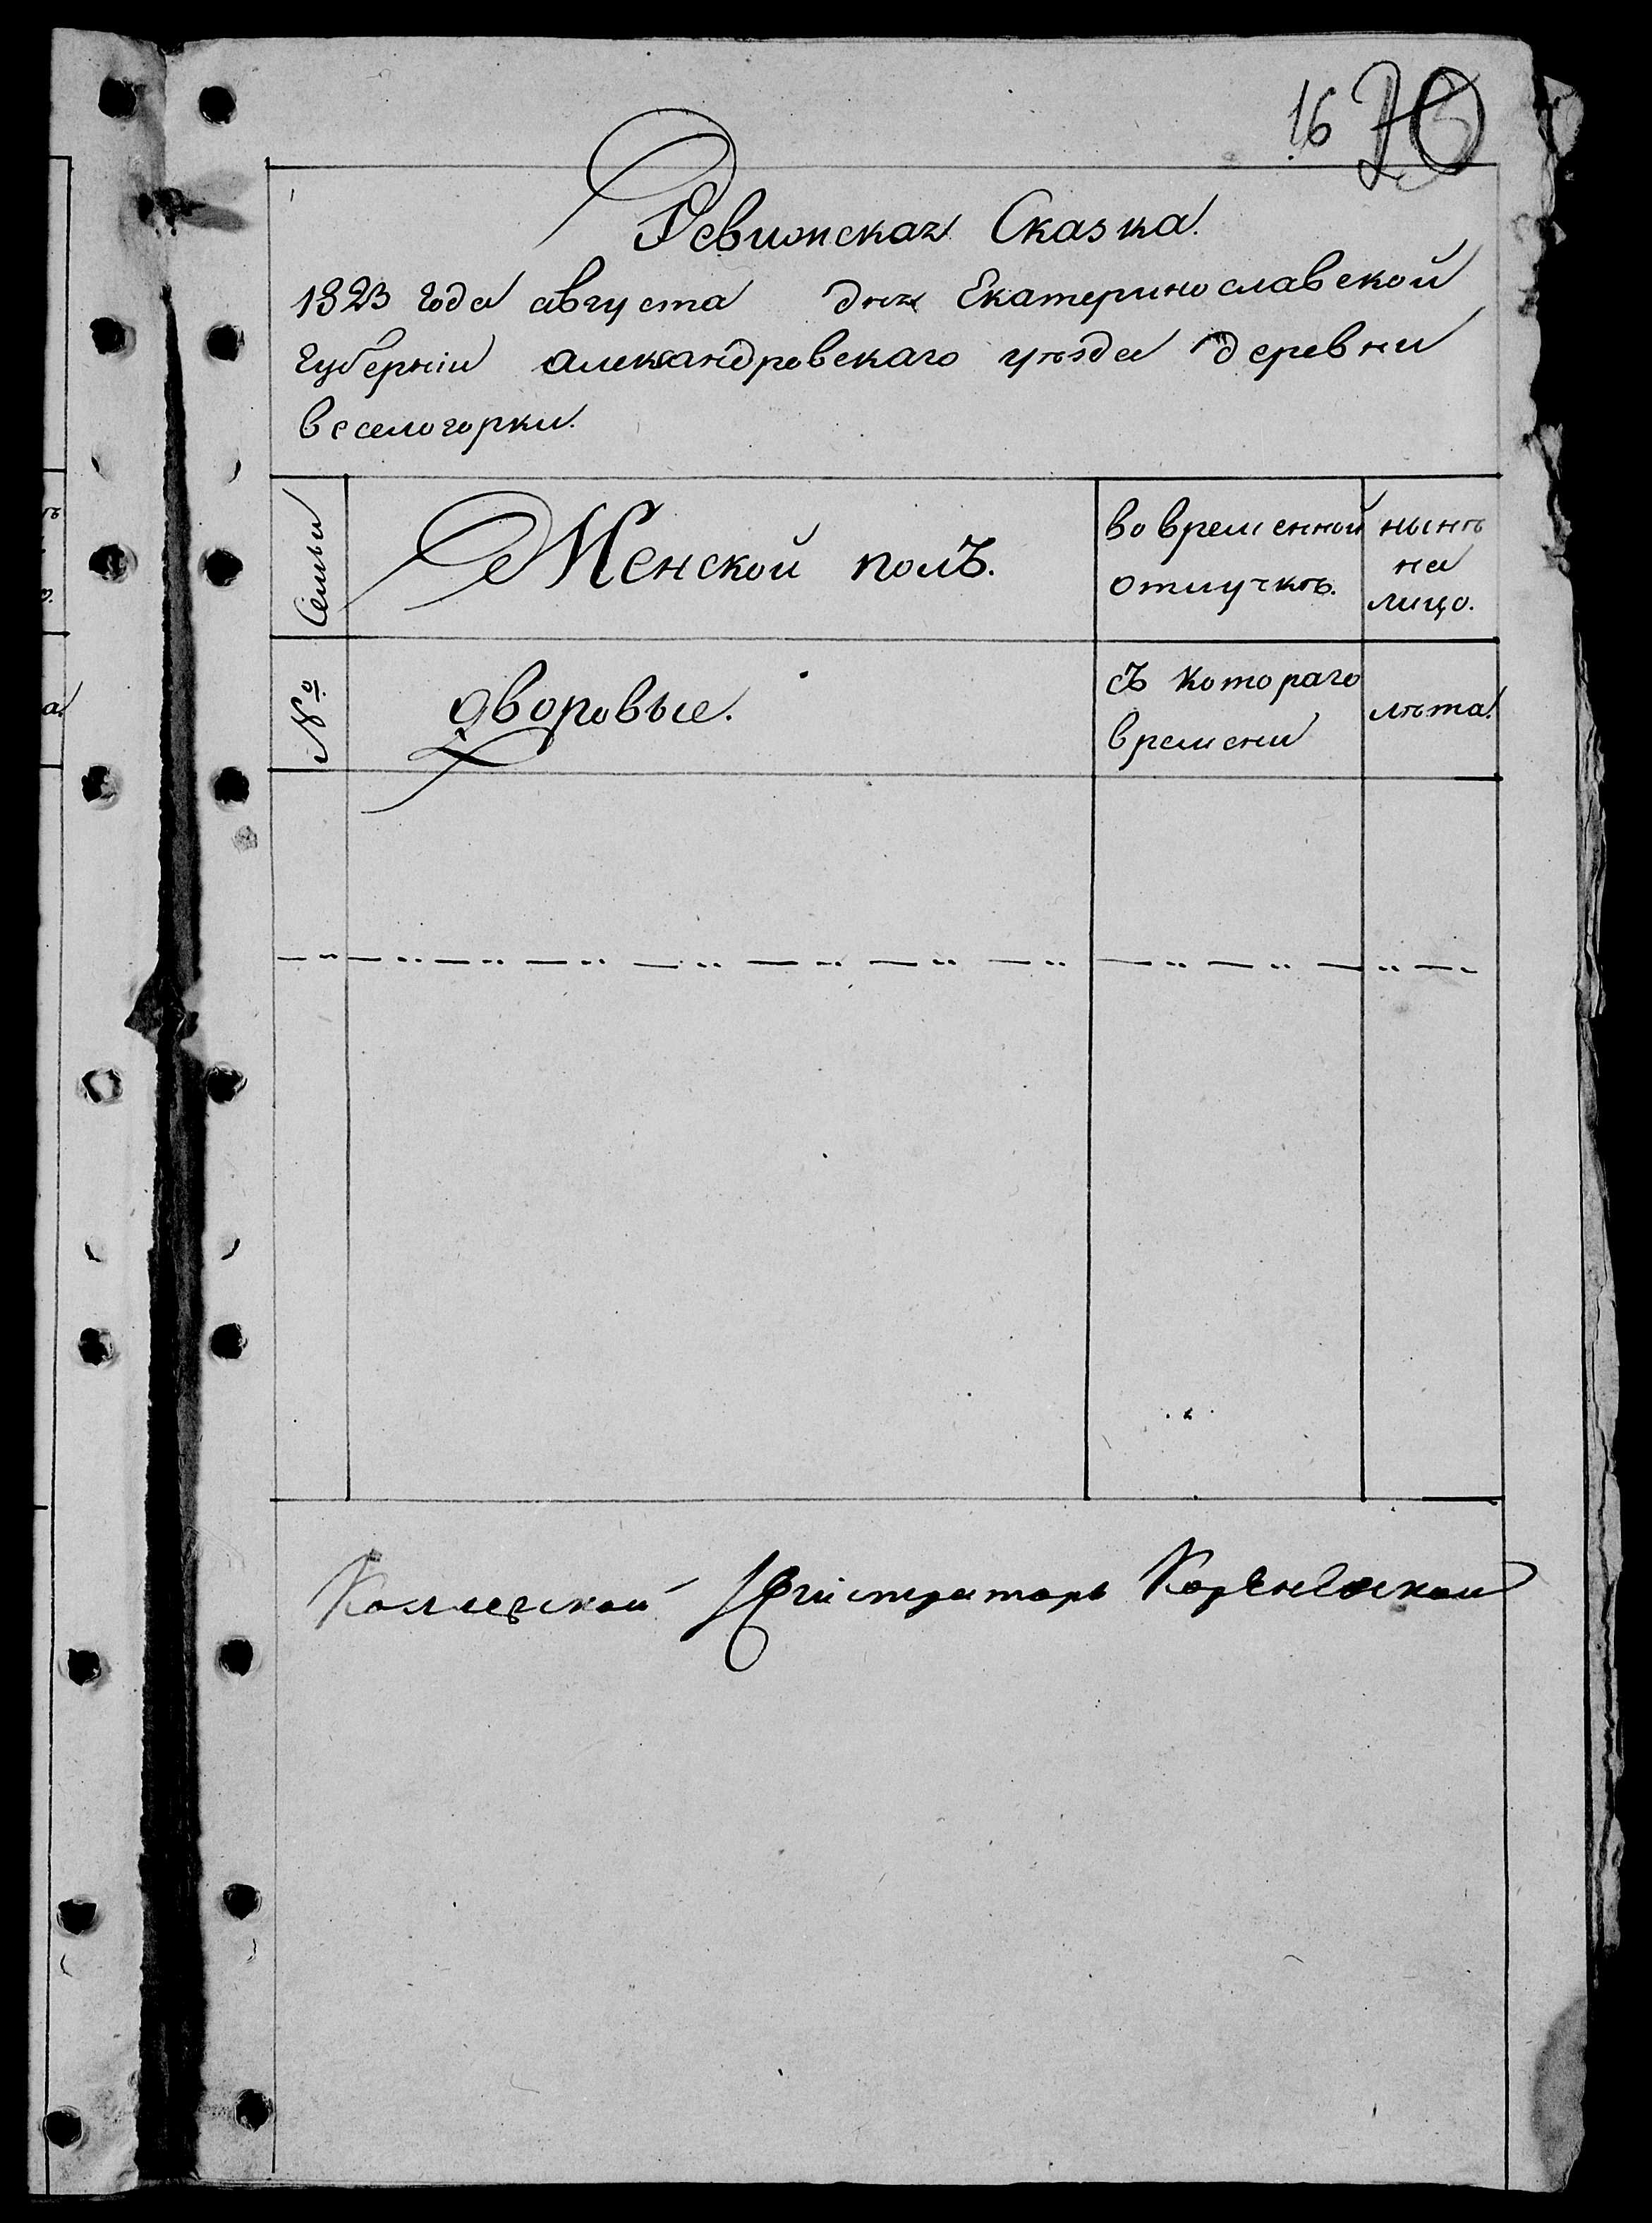 16 20
Ревижская Сказка.
1823 года августа дня Екатеринославской
губерніи александровскаго уѣзда деревни
веселогорки.
Семьи
Женской полъ.
во временной
отлучкѣ.
нынѣ
на
лицо.
№
дворовые.
съ котораго
времени
лѣта.
Коллегской Регистраторъ